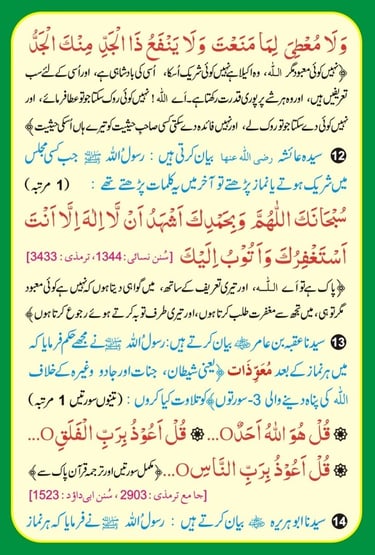 وَلَا مُعْطِیَ لِمَا مَنَعْتَ وَلَا یَنْفَعُ ذَا الْجَدِّ مِنْكَ الْجَدُّ
﴿نہیں کوئی معبود مگر اللہ، وہ اکیلا ہے نہیں کوئی شریک اُسکا، اُسی کی بادشاہی ہے، اور اُسی کے لئے سب
تعریفیں ہیں، اور وہ ہر شے پر پوری قدرت رکھتا ہے۔ اَے اللہ! نہیں کوئی روک سکتا جو تو عطا فرمائے، اور
نہیں کوئی دے سکتا جو تو روک لے، اور نہیں فائدہ دے سکتی کسی صاحبِ حیثیت کو تیرے ہاں اُسکی حیثیت﴾
12 سیدہ عائشہ رضی اللہ عنہا بیان کرتی ہیں: رسولُ اللہ ﷺ جب کسی مجلس
میں شریک ہوتے یا نماز پڑھتے تو آخر میں یہ کلمات پڑھتے تھے: (1 مرتبہ)
سُبْحَانَكَ اللّٰهُمَّ وَبِحَمْدِكَ اَشْهَدُ اَنْ لَّا اِلٰهَ اِلَّا اَنْتَ
اَسْتَغْفِرُكَ وَاَتُوْبُ اِلَيْكَ [سُنن نسائی: 1344، ترمذی: 3433]
﴿پاک ہے تو اَے اللہ، اور تیری تعریف کے ساتھ، میں گواہی دیتا ہوں کہ نہیں ہے کوئی معبود
مگر تو ہی، میں تجھ سے مغفرت طلب کرتا ہوں، اور تیری طرف توبہ کرتے ہوئے رجوع کرتا ہوں﴾
13 سیدنا عقبہ بن عامر ؓ بیان کرتے ہیں: رسولُ اللہ ﷺ نے مجھے حکم فرمایا کہ
میں ہر نماز کے بعد مُعَوِّذَات ﴿یعنی شیطان، جنات اور جادو وغیرہ کے خلاف
اللہ کی پناہ دینے والی 3-سورتوں﴾ کو تلاوت کیا کروں: (تینوں سورتیں 1 مرتبہ)
قُلْ هُوَ اللّٰهُ اَحَدٌ O... قُلْ اَعُوْذُ بِرَبِّ الْفَلَقِ O...
قُلْ اَعُوْذُ بِرَبِّ النَّاسِ O... ﴿مکمل سورتیں اور ترجمہ قرآن پاک سے﴾
[جامع ترمذی: 2903، سُنن ابی داؤد: 1523]
14 سیدنا ابو ہریرہ ؓ بیان کرتے ہیں: رسولُ اللہ ﷺ نے فرمایا کہ ہر نماز